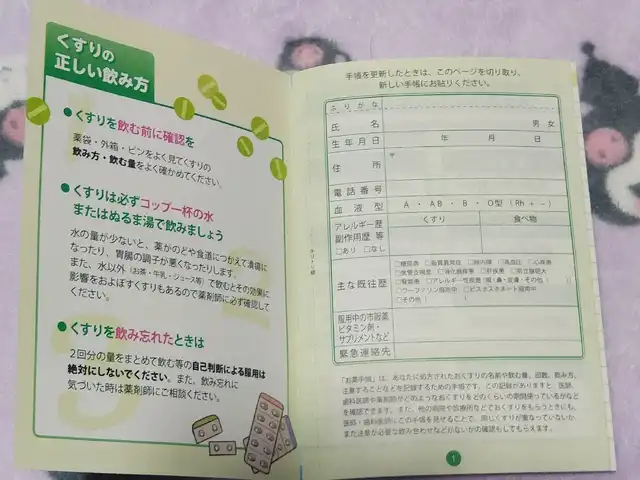 くすりの
正しい飲み方
●くすりを飲む前に確認を
薬袋・外箱・ビンをよく見てくすりの
飲み方・飲む量をよく確かめてください。
●くすりは必ずコップ一杯の水
またはぬるま湯で飲みましょう
水の量が少ないと、薬がのどや食道につかえて潰瘍に
なったり、胃腸の調子が悪くなったりします。
また、水以外（お茶・牛乳・ジュース等）で飲むとその効果に
影響をおよぼすくすりもあるので薬剤師に必ず確認して
ください。
●くすりを飲み忘れたときは
2回分の量をまとめて飲む等の自己判断による服用は
絶対にしないでください。また、飲み忘れに
気づいた時は薬剤師にご相談ください。
手帳を更新したときは、このページを切り取り、
新しい手帳にお貼りください。
ふりがな
氏名 男 女
生年月日 年 月 日
住所 〒
電話番号
血液型 A ・ AB ・ B ・ O型 (Rh + −)
アレルギー歴 くすり 食べ物
副作用歴 等
□あり □なし
主な既往歴
□糖尿病 □脂質異常症 □緑内障 □高血圧 □心疾患
□消化器疾患 □肝疾患 □前立腺肥大
□腎疾患 □アレルギー性疾患（眼・鼻・皮膚・その他（ ））
□ワーファリン服用中 □ビスホスホネート服用中
□その他（ ）
服用中の市販薬
ビタミン剤・
サプリメントなど
緊急連絡先
「お薬手帳」は、あなたに処方されたおくすりの名前や飲む量、回数、飲み方、
注意することなどを記録するための手帳です。この記録がありますと、医師、
歯科医師や薬剤師がどのようなおくすりをどのくらいの期間使っているかなど
を確認できます。また、他の病院や診療所などでおくすりをもらうときにも、
医師・歯科医師にこの手帳を見せることで、同じくすりが重なっていないか
また注意が必要な飲み合わせなどがないかの確認もしてもらえます。
1